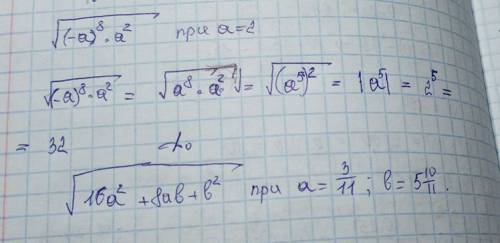 √((-a)⁸ · a²) при a=2
√((-a)⁸ · a²) = √(a⁸ · a²) = √((a⁵)²) = |a⁵| = 2⁵ =
= 32
√(16a² + 8ab + b²) при a = 3/11 ; b = 5 10/11 .